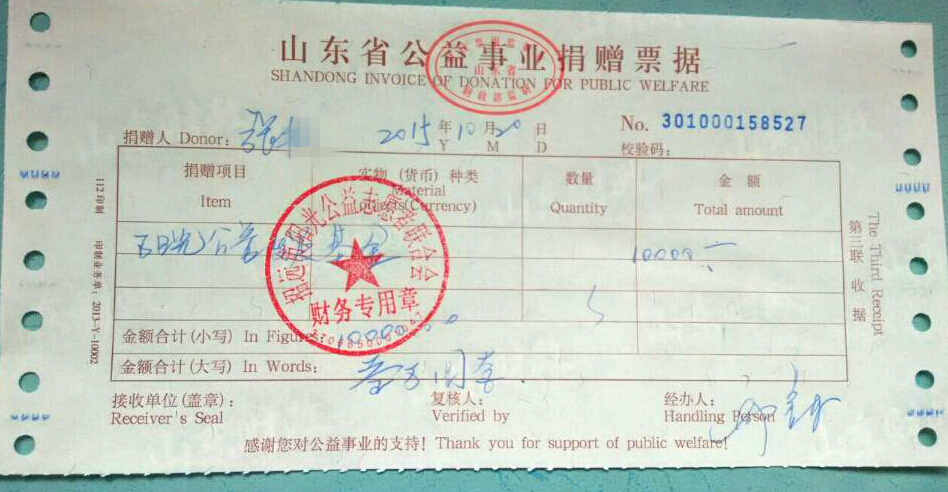 山东省公益事业捐赠票据
SHANDONG INVOICE OF DONATION FOR PUBLIC WELFARE
山东省
财政部监制
捐赠人 Donor: 2015 年 Y 10 月 M 20 日 D
No. 301000158527
校验码：
捐赠项目 Item
实物（货币）种类 Material Objects(Currency)
数量 Quantity
金额 Total amount
基金 10000
财务专用章
金额合计(小写) In Figures: 10000
金额合计(大写) In Words:
接收单位(盖章)：
Receiver's Seal
复核人：
Verified by
经办人：
Handling Person
感谢您对公益事业的支持！Thank you for support of public welfare!
第三联 收据
The Third Receipt
112印制
印制业务单：2013-Y-10002